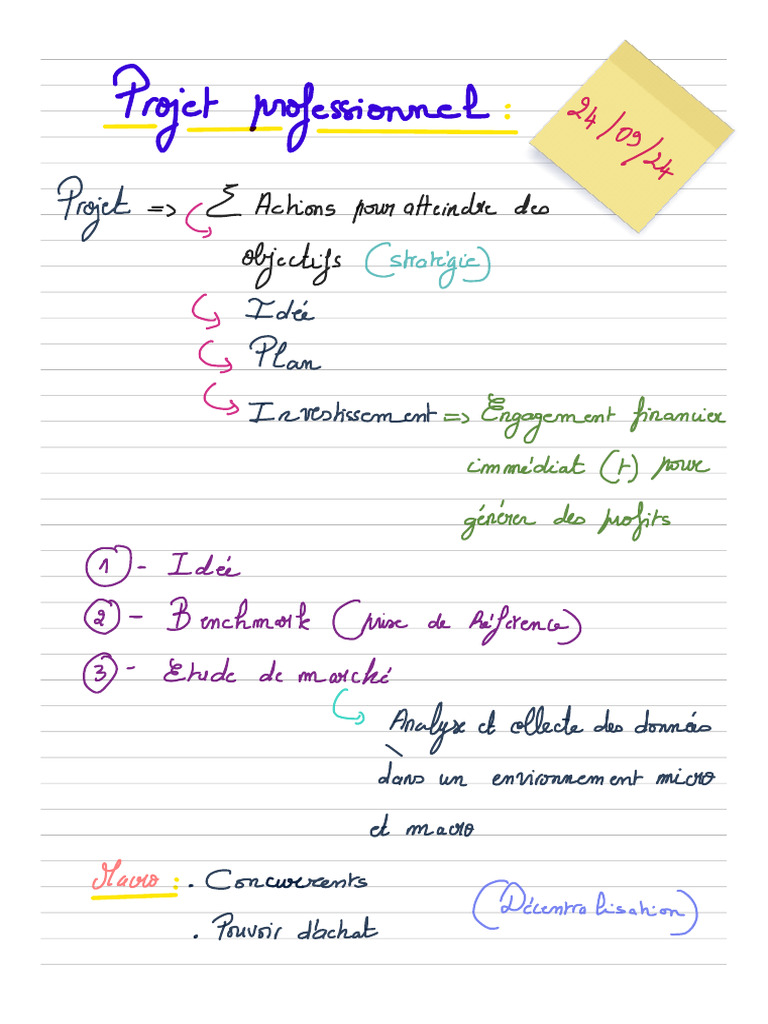 Projet professionnel :
24/09/24
Projet => Σ Actions pour atteindre des
objectifs (stratégie)
Idée
Plan
Investissement => Engagement financier
immédiat (t) pour
générer des profits
1 - Idée
2 - Benchmark (prise de Référence)
3 - Etude de marché
Analyse et collecte des donnés
dans un environnement micro
et macro
Macro : . Concurrents
(Décentralisation)
. Pouvoir d'achat